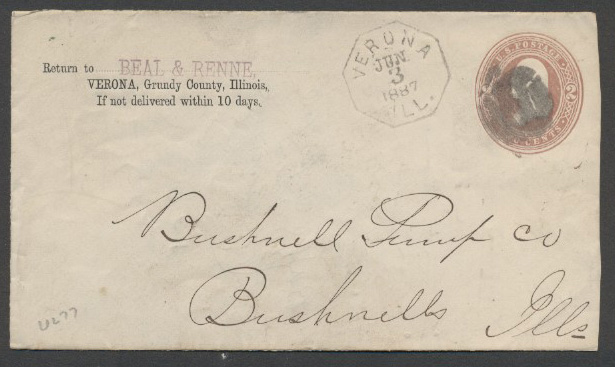 Return to BEAL & RENNE.
VERONA, Grundy County, Illinois,
If not delivered within 10 days.
VERONA
JUN
3
1887
ILL.
U.S. POSTAGE
2
CENTS
Bushnell Pump Co
Bushnells
Ills
U277